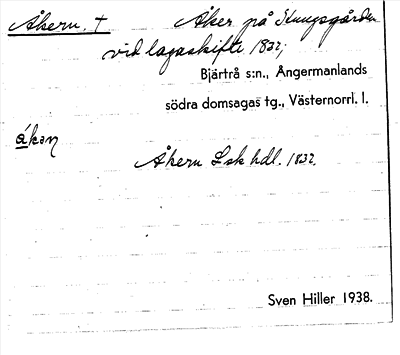 Åkern. † Åker på Kungsgården
vid lagaskifte 1832;
Bjärtrå s:n., Ångermanlands
södra domsagas tg., Västernorrl. l.
åkɐn
Åkern Lsk hdl. 1832.
Sven Hiller 1938.